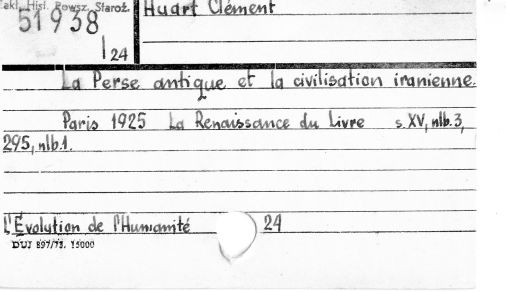 akł. Hist. Powsz. Staroż.
51938
24
Huart Clément
La Perse antique et la civilisation iranienne.
Paris 1925 La Renaissance du Livre s. XV, nlb. 3,
295, nlb. 1.
L'Évolution de l'Humanité 24
DUJ 897/73. 15000